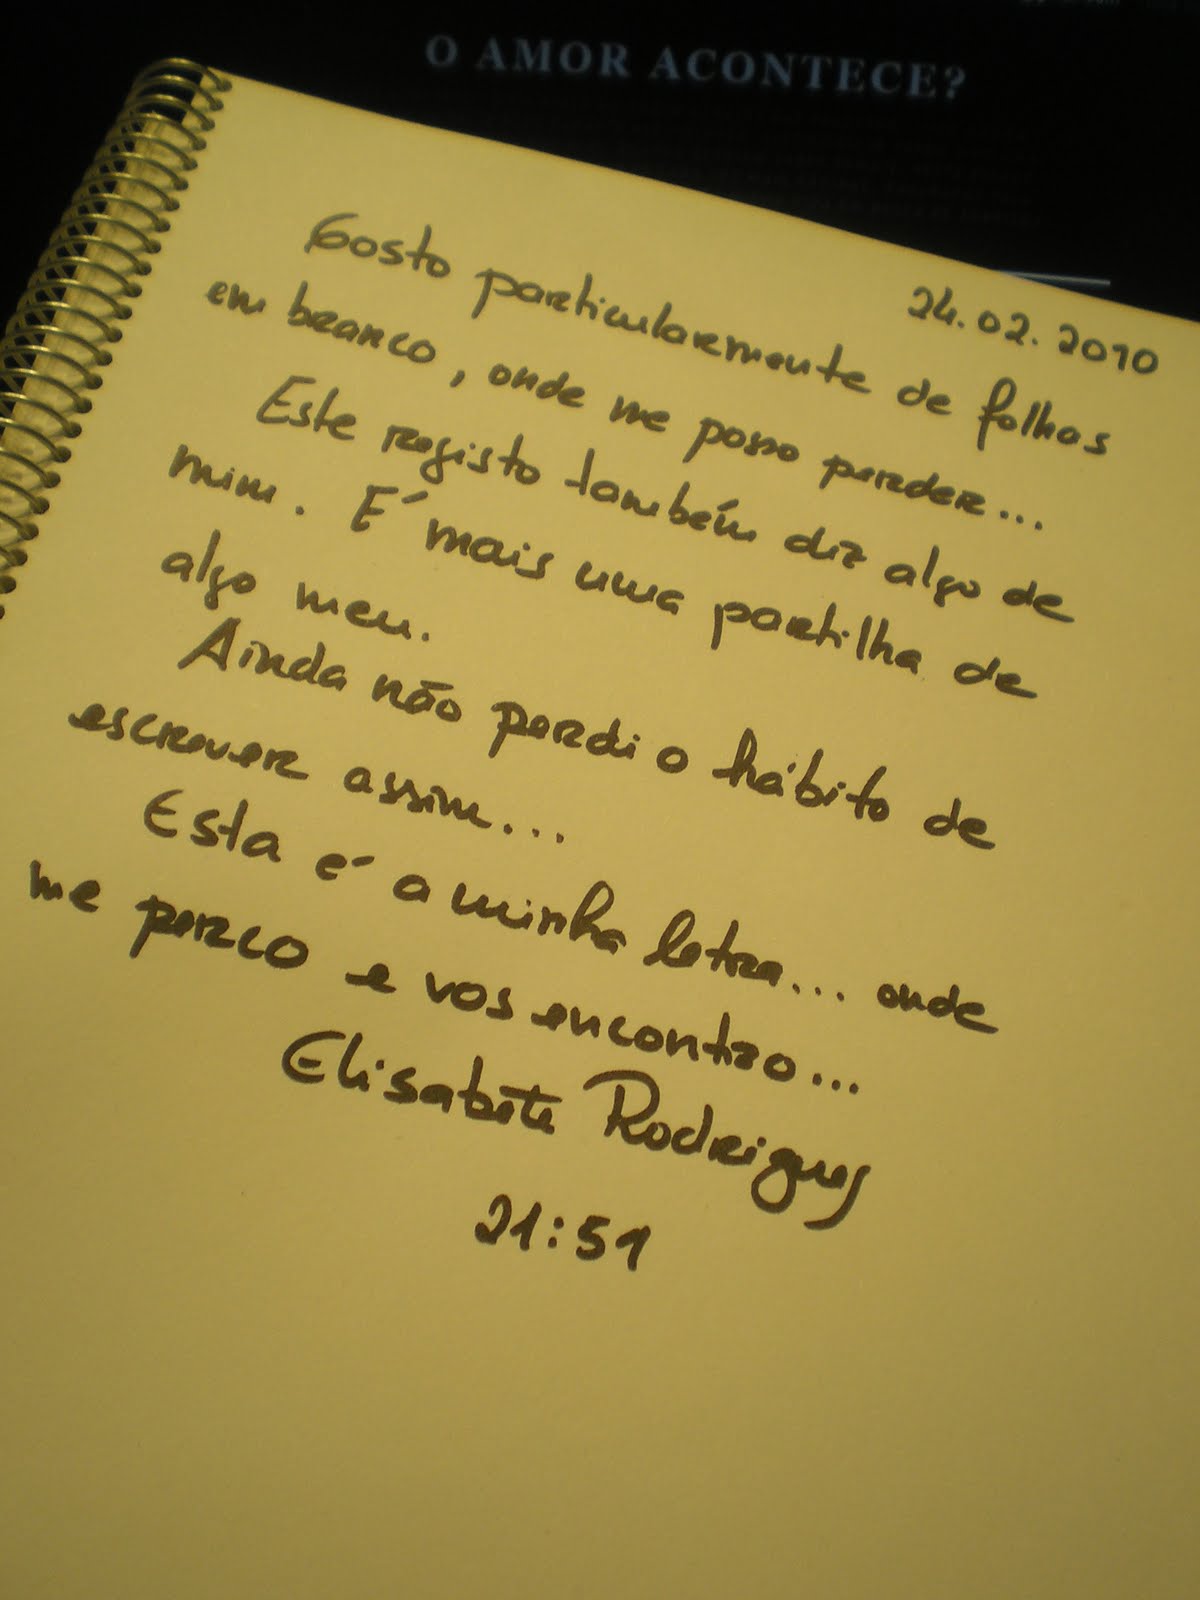 O AMOR ACONTECE?
24.02.2010
Gosto particularmente de folhas
em branco, onde me posso perder...
Este registo também diz algo de
mim. É mais uma partilha de
algo meu.
Ainda não perdi o hábito de
escrever assim...
Esta é a minha letra... onde
me perco e vos encontro...
Elisabete Rodrigues
21:51